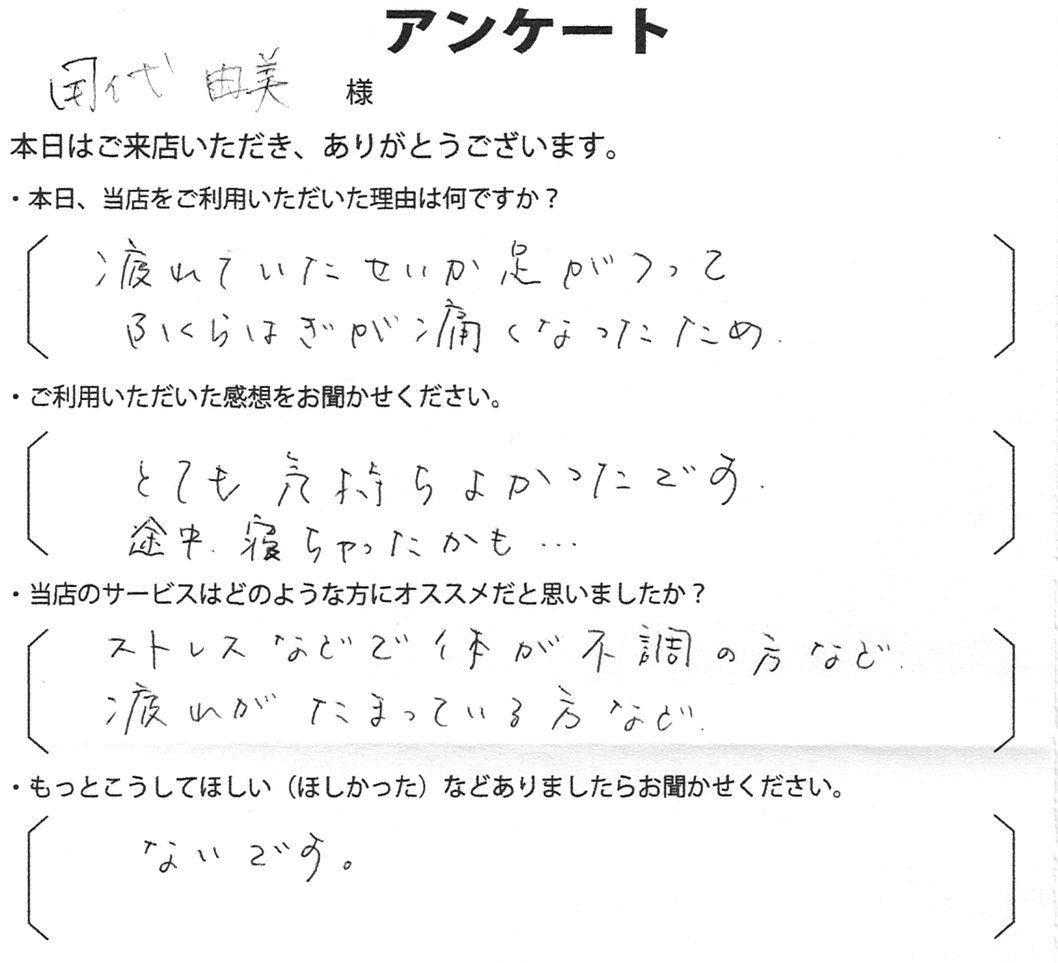 アンケート
田代 由美 様
本日はご来店いただき、ありがとうございます。
・本日、当店をご利用いただいた理由は何ですか？
疲れていたせいか足がつって
ふくらはぎが痛くなったため.
・ご利用いただいた感想をお聞かせください。
とても気持ちよかったです.
途中.寝ちゃったかも…
・当店のサービスはどのような方にオススメだと思いましたか？
ストレスなどで体が不調の方など.
疲れがたまっている方など.
・もっとこうしてほしい（ほしかった）などありましたらお聞かせください。
ないです。